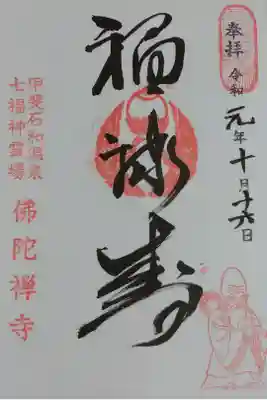 奉拝
令和元年十月十六日
福禄寿
甲斐石和温泉
七福神霊場
佛陀禅寺